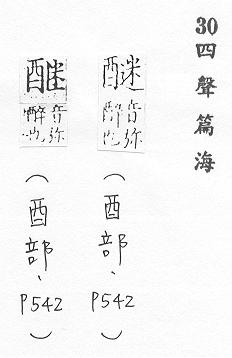 30四聲篇海
醚
音弥
醉也
（酉部、P542）
醚
音弥
醉也
（酉部、P542）